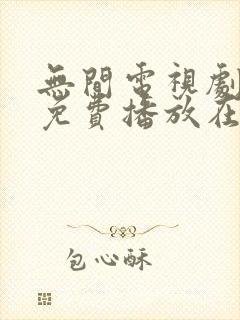 無間電視劇
免費播放在
包心酥